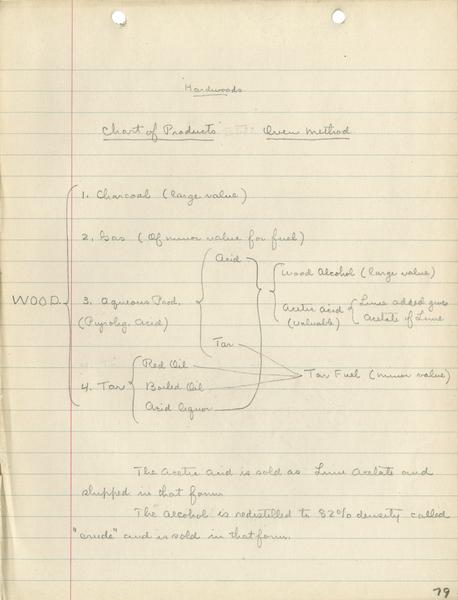 Hardwoods
Chart of Products Oven Method
1. Charcoal (large value)
2. Gas (Of minor value for fuel)
Acid
Wood Alcohol (large value)
WOOD
3. Aqueous Prod.
(Pyrolig. Acid)
Acetic acid
(valuable)
Lime added gives
Acetate of Lime
Tar
4. Tar
Red Oil
Boiled Oil
Acid liquor
Tar Fuel (minor value)
The Acetic Acid is sold as Lime Acetate and
shipped in that form.
The alcohol is redistilled to 82% density called
"crude" and is sold in that form.
79